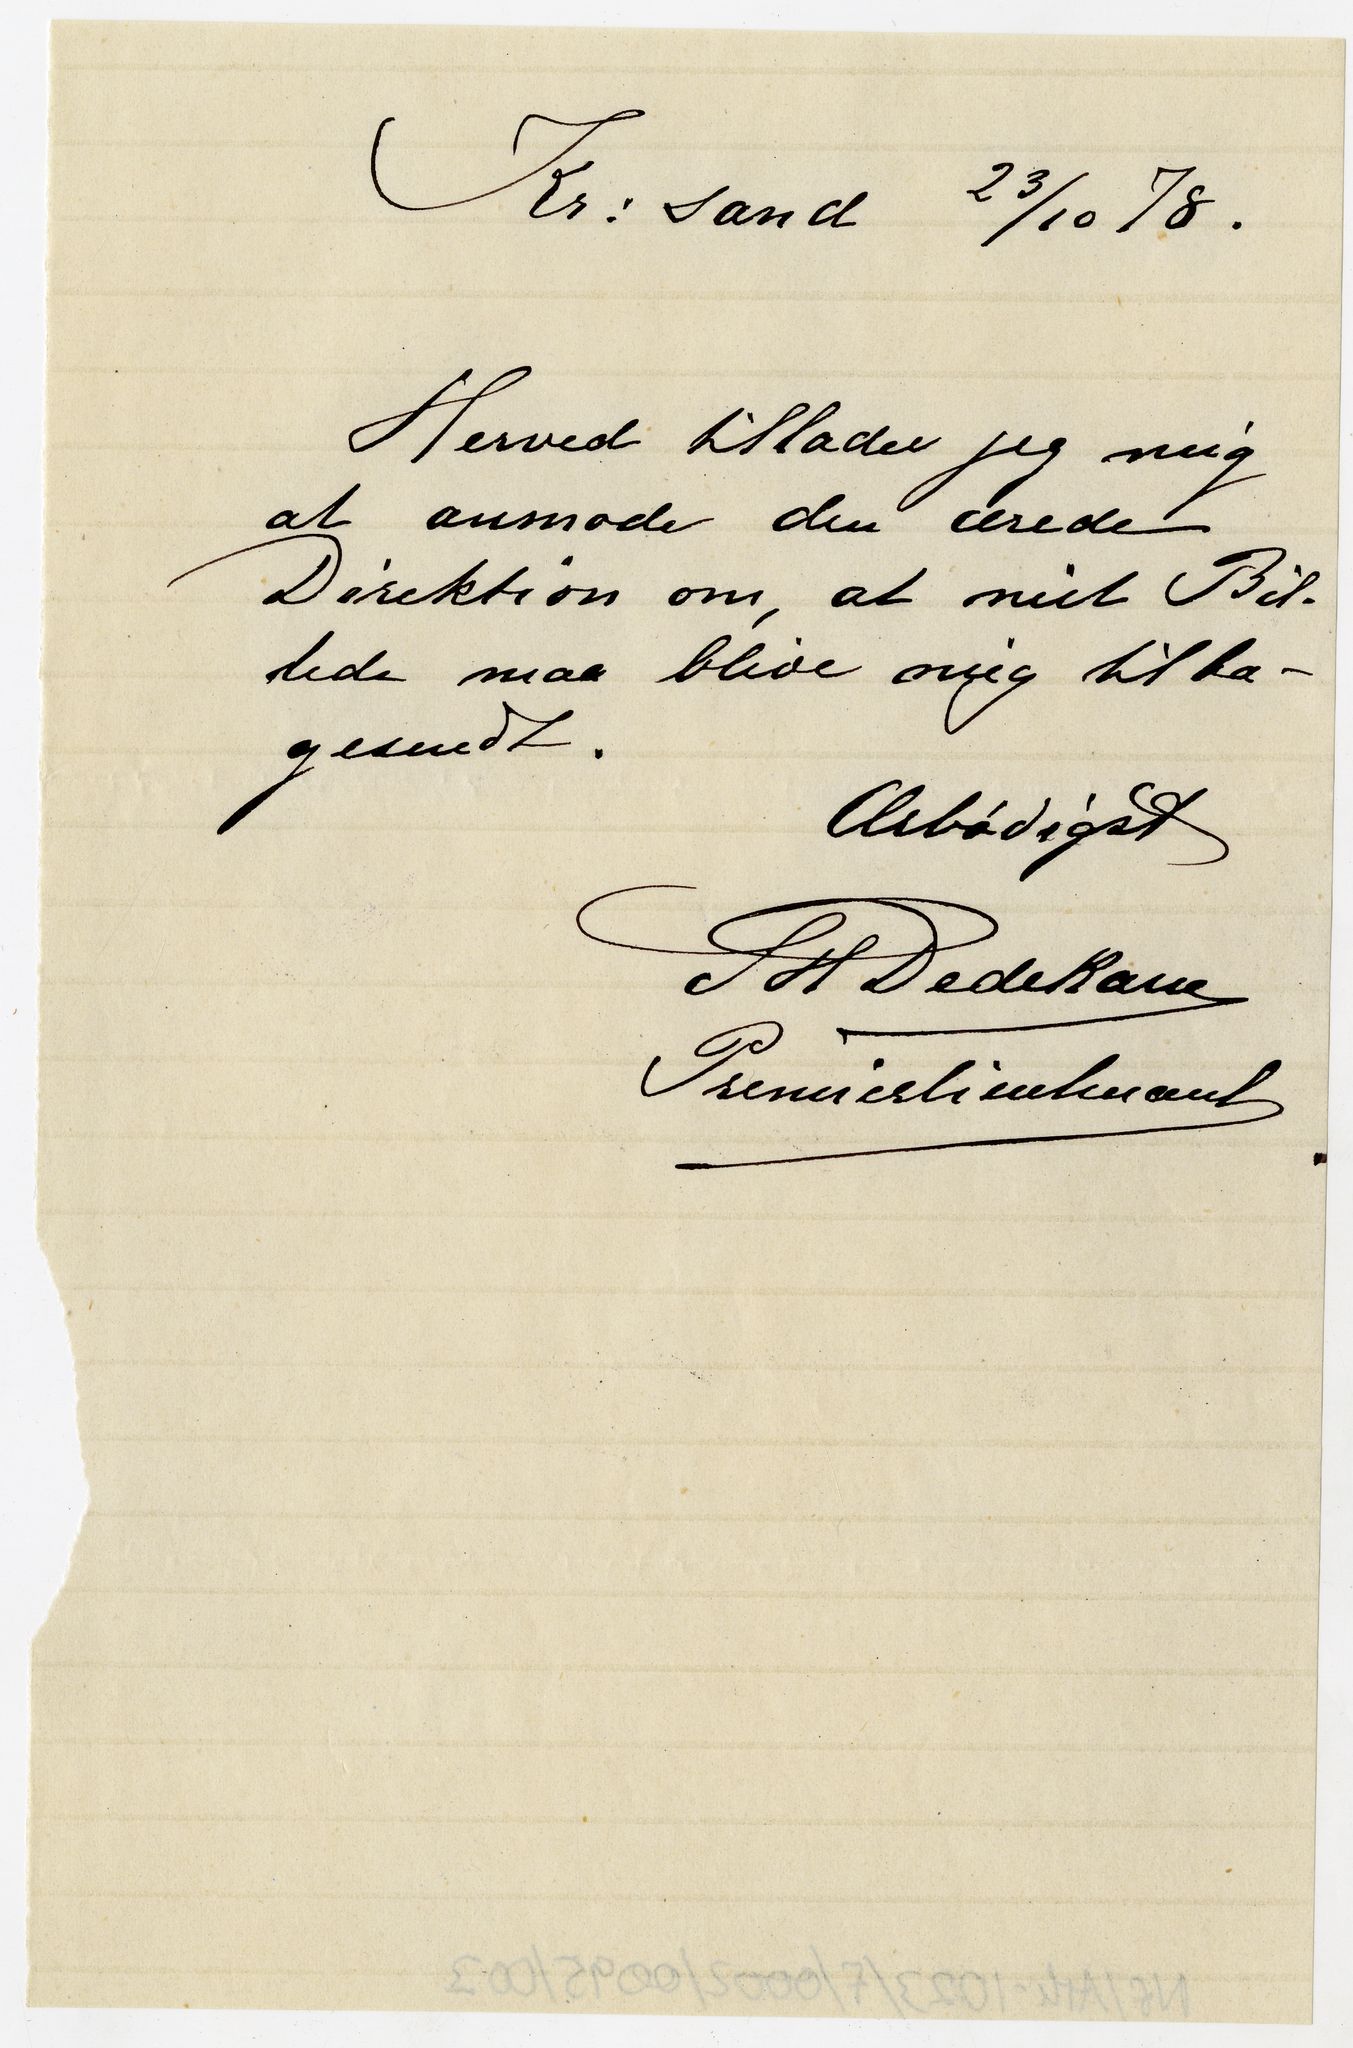 Kr: sand 23/10 78.
Herved tillader jeg mig
at anmode den ærede
Direktion om, at mit Bil-
lede maa blive mig tilba-
gesendt.
Ærbödigst
SH Dedekam
Premierlieutenant
NF/Ark-1023/F/0002/0095/003